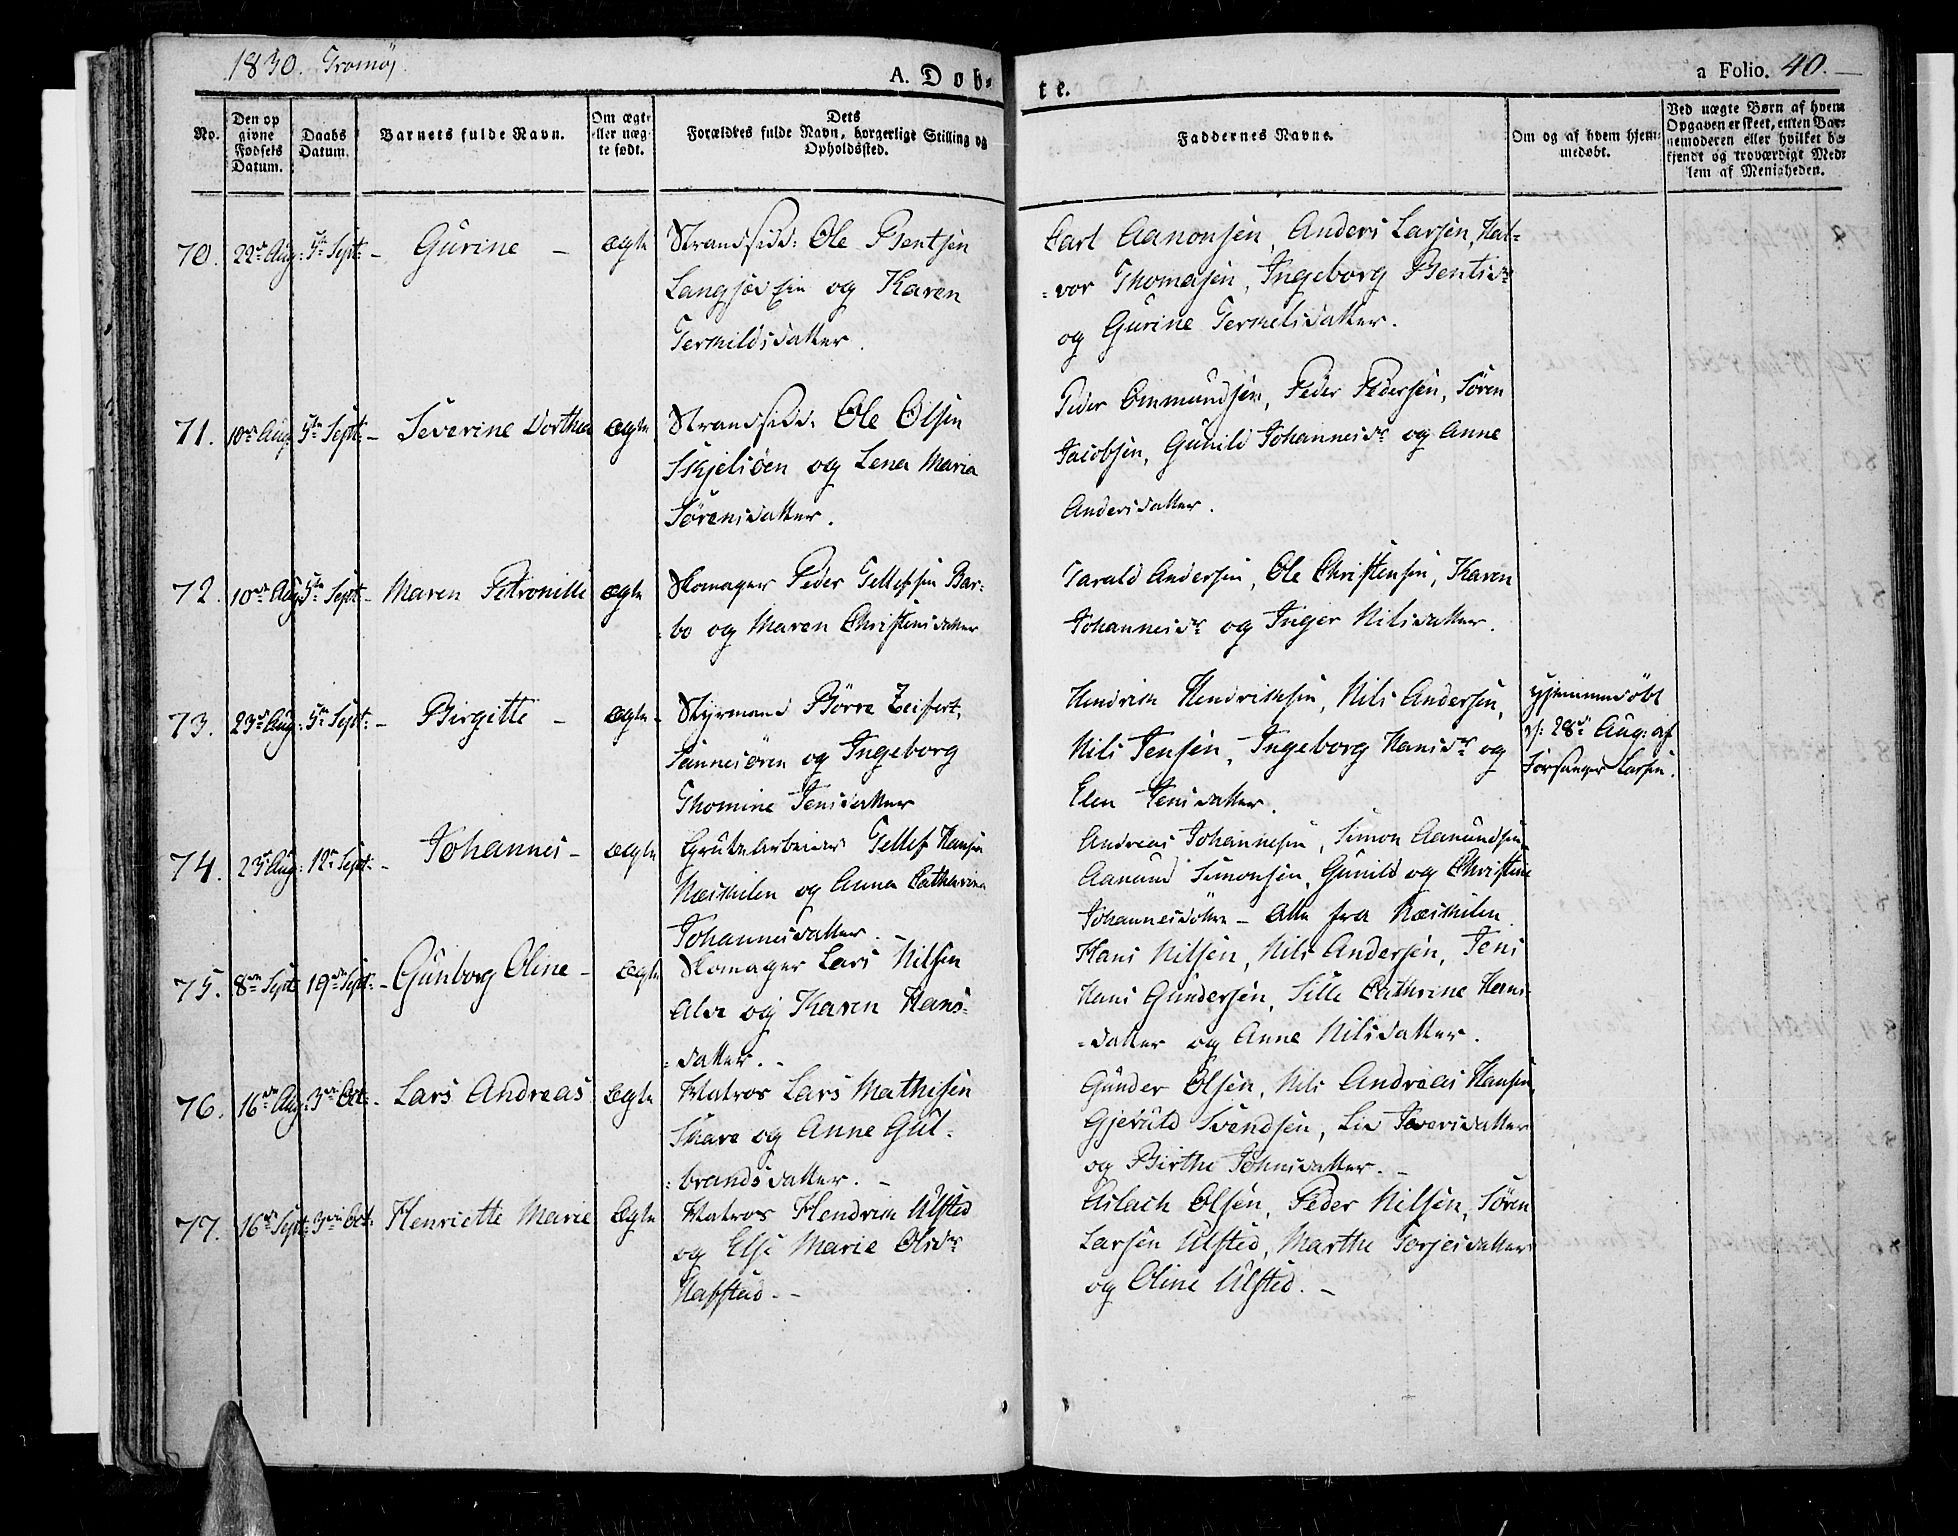 1830. Tromøj
A. Døb-
te.
a Folio. 40.
No.
Den op
givne
Fødsels
Datum.
Daabs
Datum.
Barnets fulde Navn.
Om ægte
eller uæg-
te født.
Dets
Forældres fulde Navn, borgerlige Stilling og
Opholdssted.
Faddernes Navne.
Om og af hvem hjem-
medøbt.
Ved uægte Børn af hvem
Opgaven er skeet, enten Bar-
nemoderen eller hvilket be-
kjendt og troværdigt Med-
lem af Menigheden.
70. 22de Aug: 5te Sept: - Gurine - ægte
Strandsidd: Ole Bentsen
og Karen
Terkildsdatter.
Carl Aanonsen, Anders Larsen, Hal-
-vor Thomasen, Ingeborg Bentsdr
og Gurine Terkelsdatter.
71. 10de Aug 5te Sept: - Severine Dorthea ægte
Strandsidd: Ole Olsen
Skjelsöen og Lena Maria
Sörensdatter.
Peder Ommundsen, Peder Pedersen, Sören
Jacobsen, Gunild Johannesdr og Anne
Andersdatter.
72. 10de Aug 5te Sept: - Maren Petronille ægte
Skomager Peder Tellefsen Bar-
bo og Maren Christensdatter
Tarald Andersen, Ole Christensen, Karen
Johannesdr og Inger Nilsdatter.
73. 23de Aug: 5te Sept: - Birgitte - ægte -
Styrmand Börre Zeifert,
Sannesören og Ingeborg
Thomine Jensdatter
Hendrik Hendriksen, Nils Andersen,
Nils Jensen, Ingeborg Hansdr og
Elen Jensdatter.
hjemmedöbt
d: 28de Aug: af
Forsanger Larsen.
74. 23de Aug: 12te Sept: - Johannes - ægte
Grubearbeider Tellef Hansen
Næskilen og Anna Catharina
Johannesdatter. -
Andreas Johannesen, Simon Aanundsen
Aanund Simonsen, Gunild og Christine
Johannesdötre - Alle fra Næskilen
75. 8de Sept 19de Sept: - Gunborg Oline - ægte
Skomager Lars Nilsen
Alve og Karen Hans-
-datter. -
Hans Nilsen, Nils Andersen, Jens
Hans Gundersen, Sille Cathrine Hans-
-datter og Anne Nilsdatter.
76. 16de Aug: 3de Oct: - Lars Andreas ægte
Matros Lars Mathisen
Skare og Anne Gul-
-brandsdatter. -
Gunder Olsen, Nils Andreas Hansen,
Gjeruld Svendsen, Liv Sversdatter
og Birthe Johnsdatter. -
77. 16de Sept: 3die Oct: Henriette Marie ægte
Matros Hendrik Ulsted
og Else Marie Olsdr
Hafsted. -
Aslach Olsen, Peder Nilsen, Sören
Larsen Ulsted, Marthe Torjesdatter
og Oline Ulsted. -